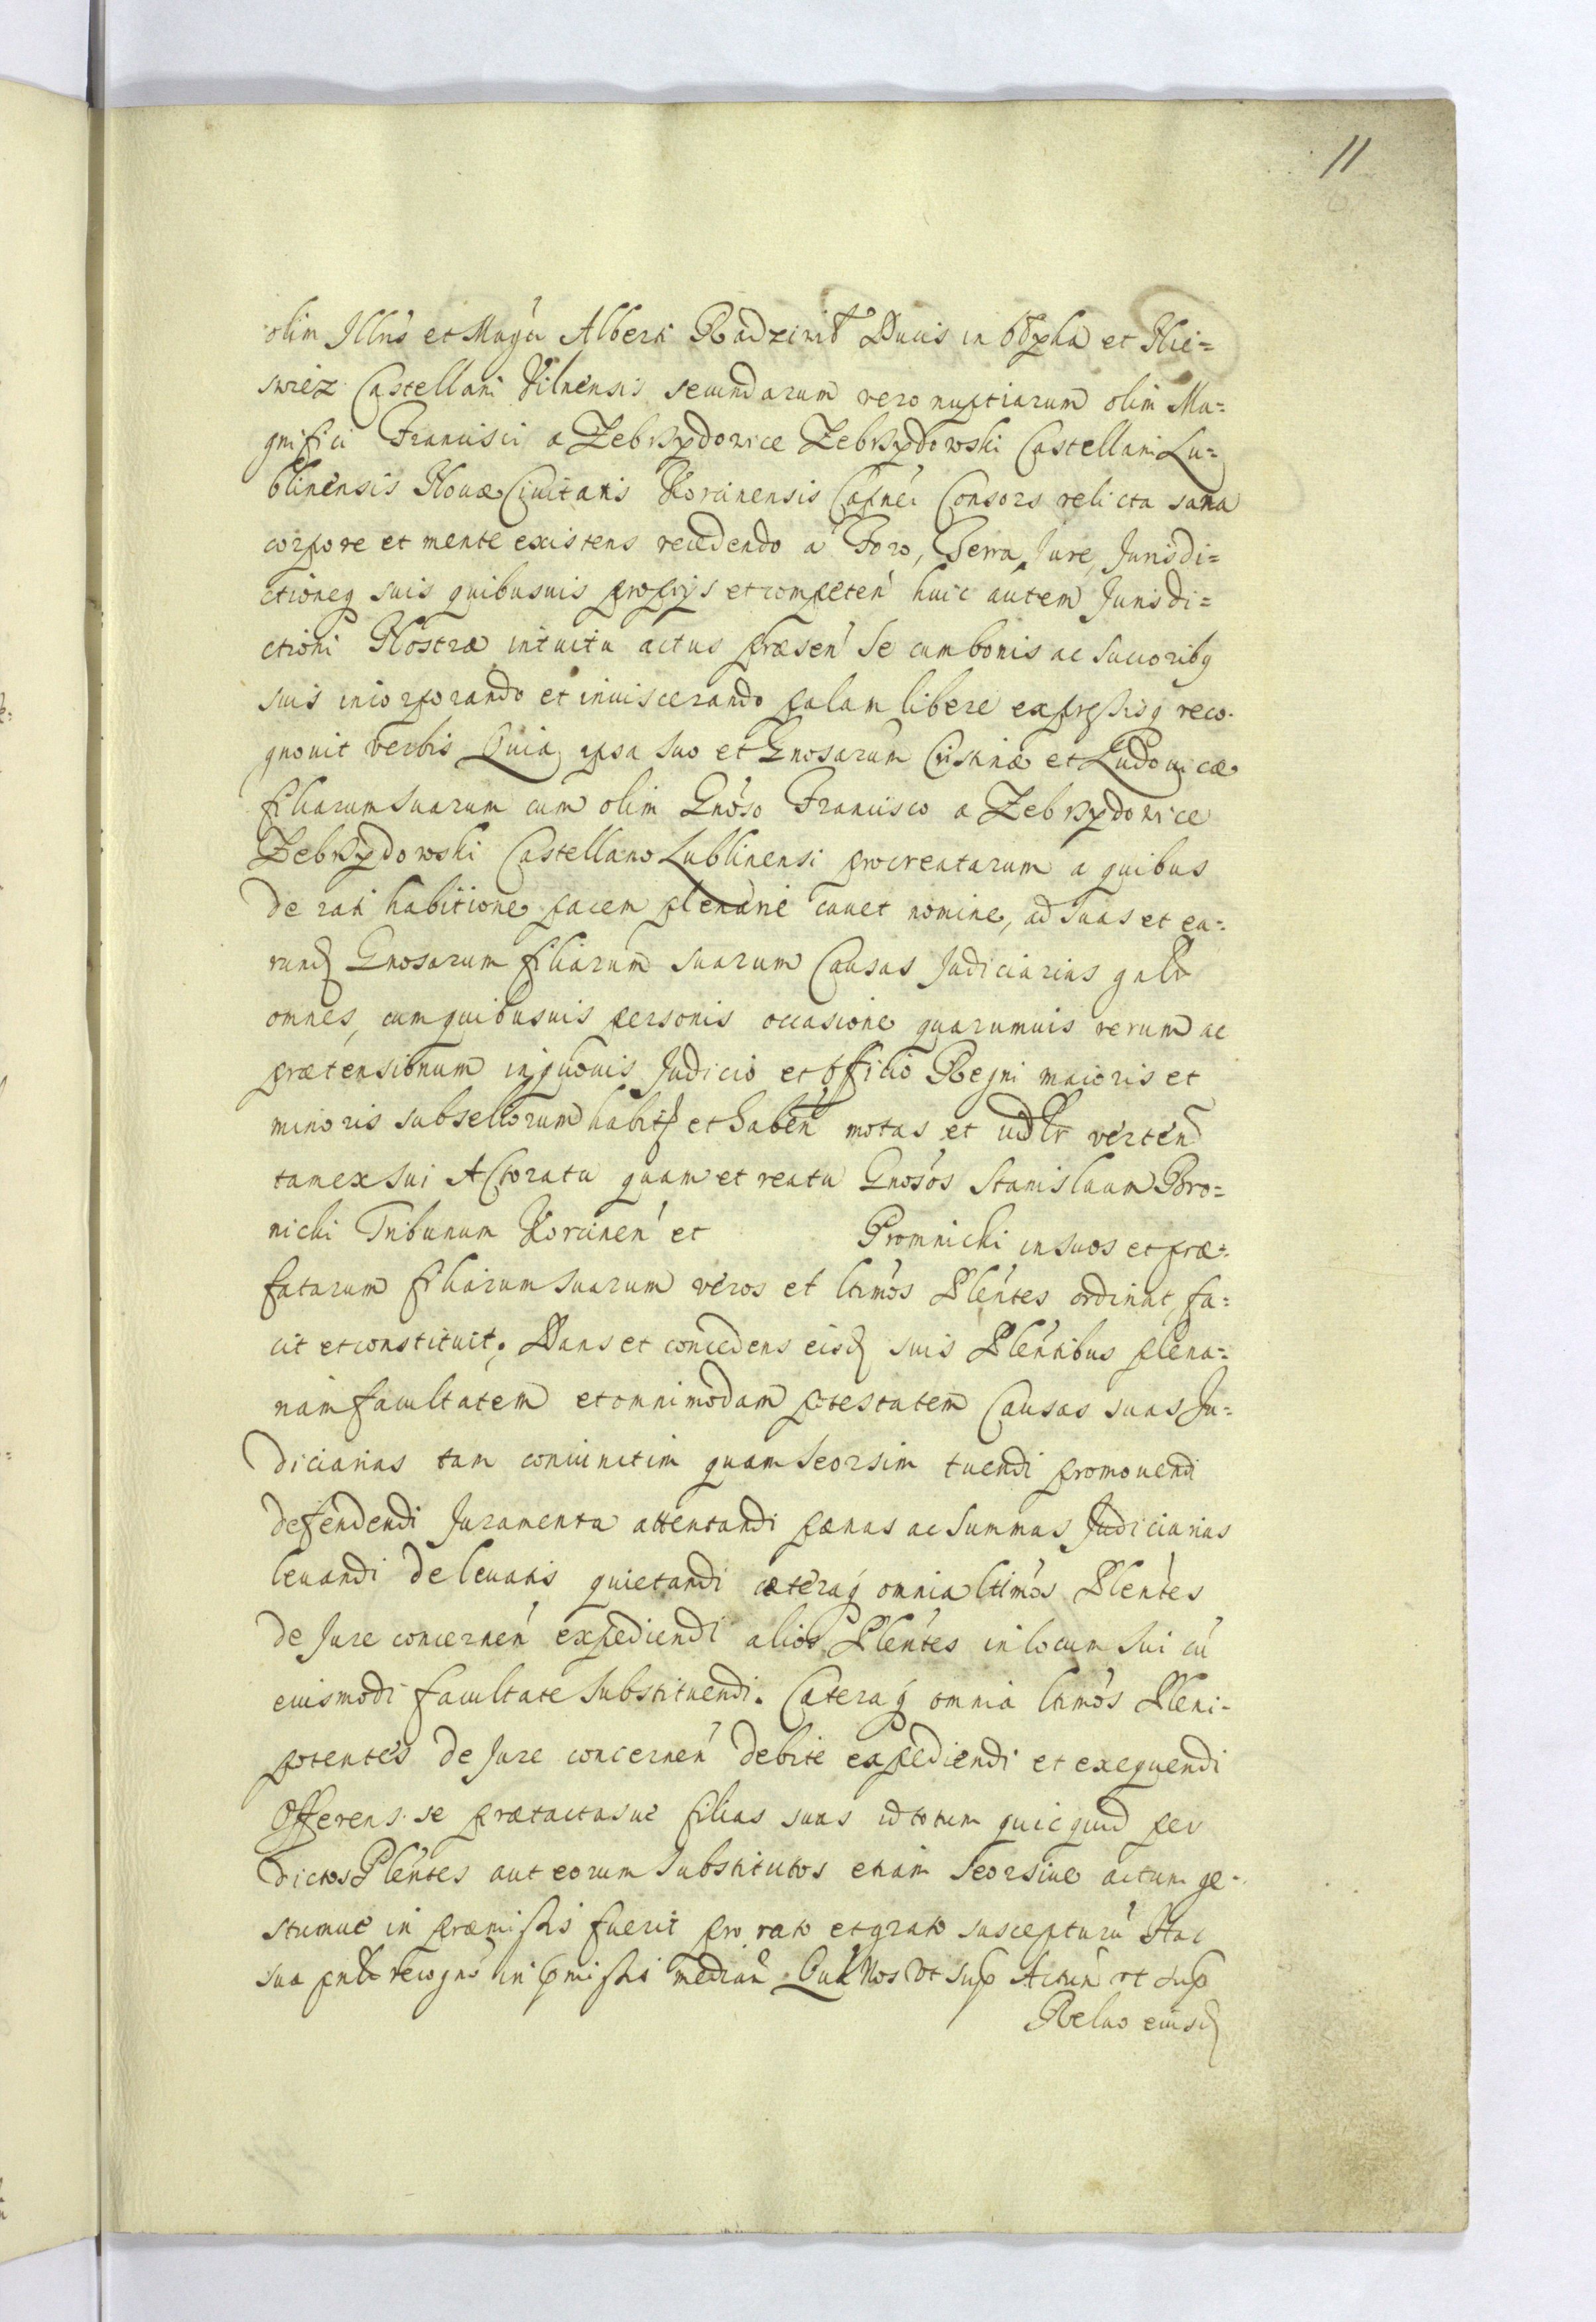 11
olim Illus et Magci Alberti Radziwił Ducis in Ołyka et Nie=
swiez Castellani Vilnensis secundarum vero nuptiarum olim Ma=
gnifici Francisci a Zebrzydowice Zebrzydowski Castellani Lu=
blinensis Novæ Civitatis Korcinensis Capnei Consors relicta sana
corpore et mente existens recedendo a Foro, Terra, Jure, Jurisdi=
ctioneq suis quibusuis proprijs et competen huic autem Jurisdi=
ctioni Nostræ intuitu actus præsen se cum bonis ac succoribq
suis incorporando et inuiscerando palam libere expressisq reco-
gnouit verbis Quia ipsa suo et Gnosarum Cristinæ et Ludouicæ
filiarum suarum cum olim Gnoso Francisco a Zebrzydowice
Zebrzydowski Castellano Lublinensi procreatarum a quibus
de rati habitione pacem plenarie cauet nomine, ad suas et ea=
rund Gnosarum filiarum suarum Causas Judiciarias gnlr
omnes, cum quibusuis personis occasione quarumuis rerum ac
prætensionum in quouis Judicio et Officio Regni maioris et
minoris subselliorum habit et haben motas et vdlt verten
tam ex sui Actoratu quam et reatu Gnosos Stanislaum Bro=
nicki Tribunum Korcinen et Promnicki in suos et præ=
fatarum filiarum suarum veros et ltimos Plentes ordinat, fa=
cit et constituit; Dans et concedens eisd suis Plentibus plena=
riam facultatem et omnimodam potestatem Causas suas Ju=
diciarias tam coniunctim quam seorsim tuendi promouendi
defendendi Juramenta attentandi pænas ac summas Judiciarias
leuandi de leuatis quietandi cæteraq omnia ltimos Plentes
de Jure concernen expediendi alios Plentes in locum sui cu
eiusmodi facultate substituendi. Cæteraq omnia ltimos Pleni-
potentes de Jure concernen debite expediendi et exequendi
Offerens se prætactasue filias suas id totum quicquid per
dictos Plentes aut eorum substitutos etiam seorsiue actum ge-
stumue in præmissis fuerit pro rato et grato suscepturu Hac
sua pnti recogne in pmissis median Qua Nos vt sup Actum vt sup
Relao eiusd